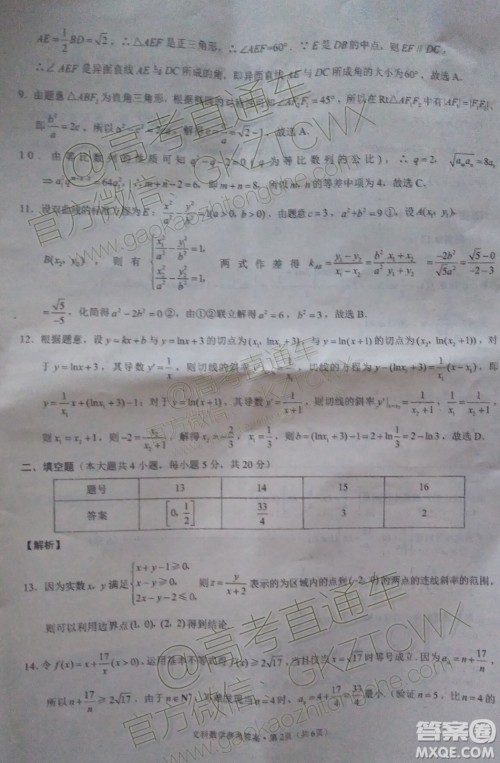 AE=1/2 BD=√2，∴△AEF是正三角形，∴∠AEF=60°. ∵E是DB的中点，则EF∥DC，
∴∠AEF是异面直线AE与DC所成的角，即异面直线AE与DC所成角的大小为60°，故选A.
9. 由题意△ABF₂为直角三角形，根据 =45°，所以在Rt△AF₁F₂中有|AF₁|=|F₁F₂|
即 b²/a=2c，所以a²-c²= 解得 =√2-1，故选A.
10. 由等比数列的性质可知 （q为等比数列的公比），∴q=2，√(aₘaₙ)=8a₁
=64a₁²，∴m+n-2=6，即m+n=8，所以m，n的等差中项为4，故选C.
11. 设双曲线的标准方程为E：x²/a²-y²/b²=1(a>0，b>0)，由题意c=3，a²+b²=9①，设A(x₁，y₁)，
B(x₂，y₂)，则有 {x₁²/a²-y₁²/b²=1， x₂²/a²-y₂²/b²=1， 两式作差得 k_AB=(y₁-y₂)/(x₁-x₂)=b²/a²·(x₁+x₂)/(y₁+y₂)=-2b²/√5a²=(√5-0)/(-2-3)
=√5/-5，化简得a²-2b²=0②，由①②联立解得a²=6，b²=3，故选B.
12. 根据题意，设y=kx+b与y=lnx+3的切点为(x₁，lnx₁+3)，与y=ln(x+1)的切点为(x₂，ln(x₂+1))，对
于y=lnx+3，其导数y'=1/x，则切线的斜率 切线的方程为 =1/x₁(x-x₁)，即
y=1/x₁ x+(lnx₁+3)-1；对于y=ln(x+1)，其导数 则切线的斜率y'|ₓ₌ₓ₂=1/(x₂+1)，
则 ，则 解得x₂=-2/3， 则b=(lnx₁+3)-1=2+lnx₁=2-ln3，故选D.
二、填空题（本大题共4小题，每小题5分，共20分）
题号 13 14 15 16
答案 [0，1/2] 33/4 3 2
【解析】
13. 因为实数x，y满足 {x+y-1≥0， x-y≥0， 2x-y-2≤0， 则z=y/(x+2)表示的为区域内的点到(-2，0)的两点的连线斜率的范围，
则可以利用边界点(1，0)，(2，2)得到结论
14. 令f(x)=x+17/x(x>0)，运用基本不等式得 ≥2√17，当且仅当x=√17时等号成立，因为aₙ=n+17/n，
所以n+17/n≥2√17，由于n∈N*， 发现当n=4时，aₙ=4+17/4=33/4最小（验证n=5，比n=4
文科数学 答案·第2页（共6页）
高考直通车
官方微信：GKZTCWX
@高考直通车
www.gaokaozhitongche.com
答案圈
MXQE.COM